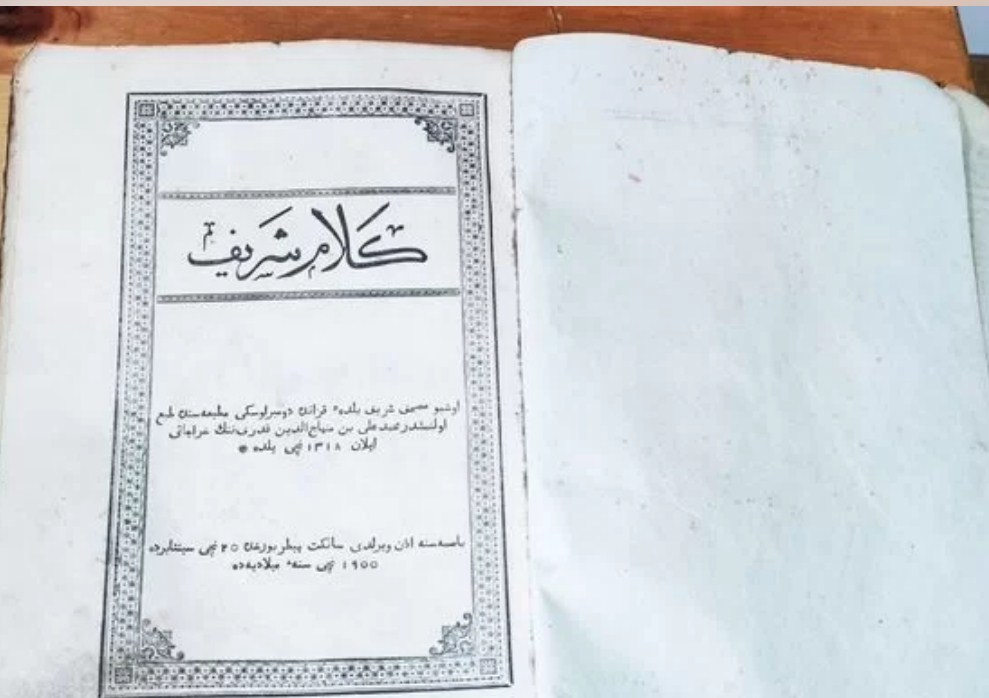 كلام شريف
اوشبو مصحف شريف بلدهٔ قزانده دومبراوسكى مطبعه‌سنده طبع
اولنمشدر محمدعلى بن منهاج‌الدين قدرى‌ننك خراجاتى
ايلان ۱۳۱۸ نچى يلده
باصمه‌سنه اذن ويرلدى سانكت پيطربورغده ۲۵ نچى سينتابرده
۱۹۰۰ نچى سنهٔ ميلاديه‌ده